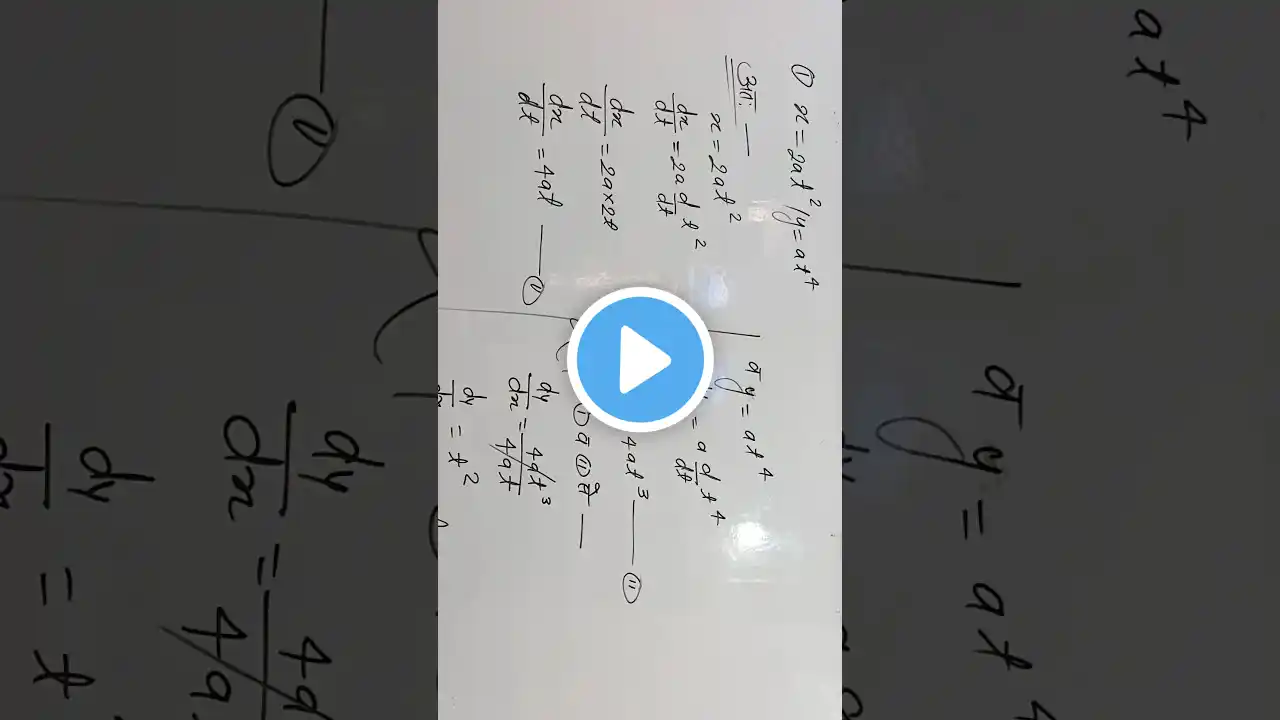 ① x = 2at², y = at⁴
x = 2at²
dx/dt = 2a d/dt t²
dx/dt = 2a×2t
dx/dt = 4at — ①
व y = at⁴
= a d/dt t⁴
4at³ — ⑪
① व ⑪ से —
dy/dx = 4at³/4at
dy/dx = t²